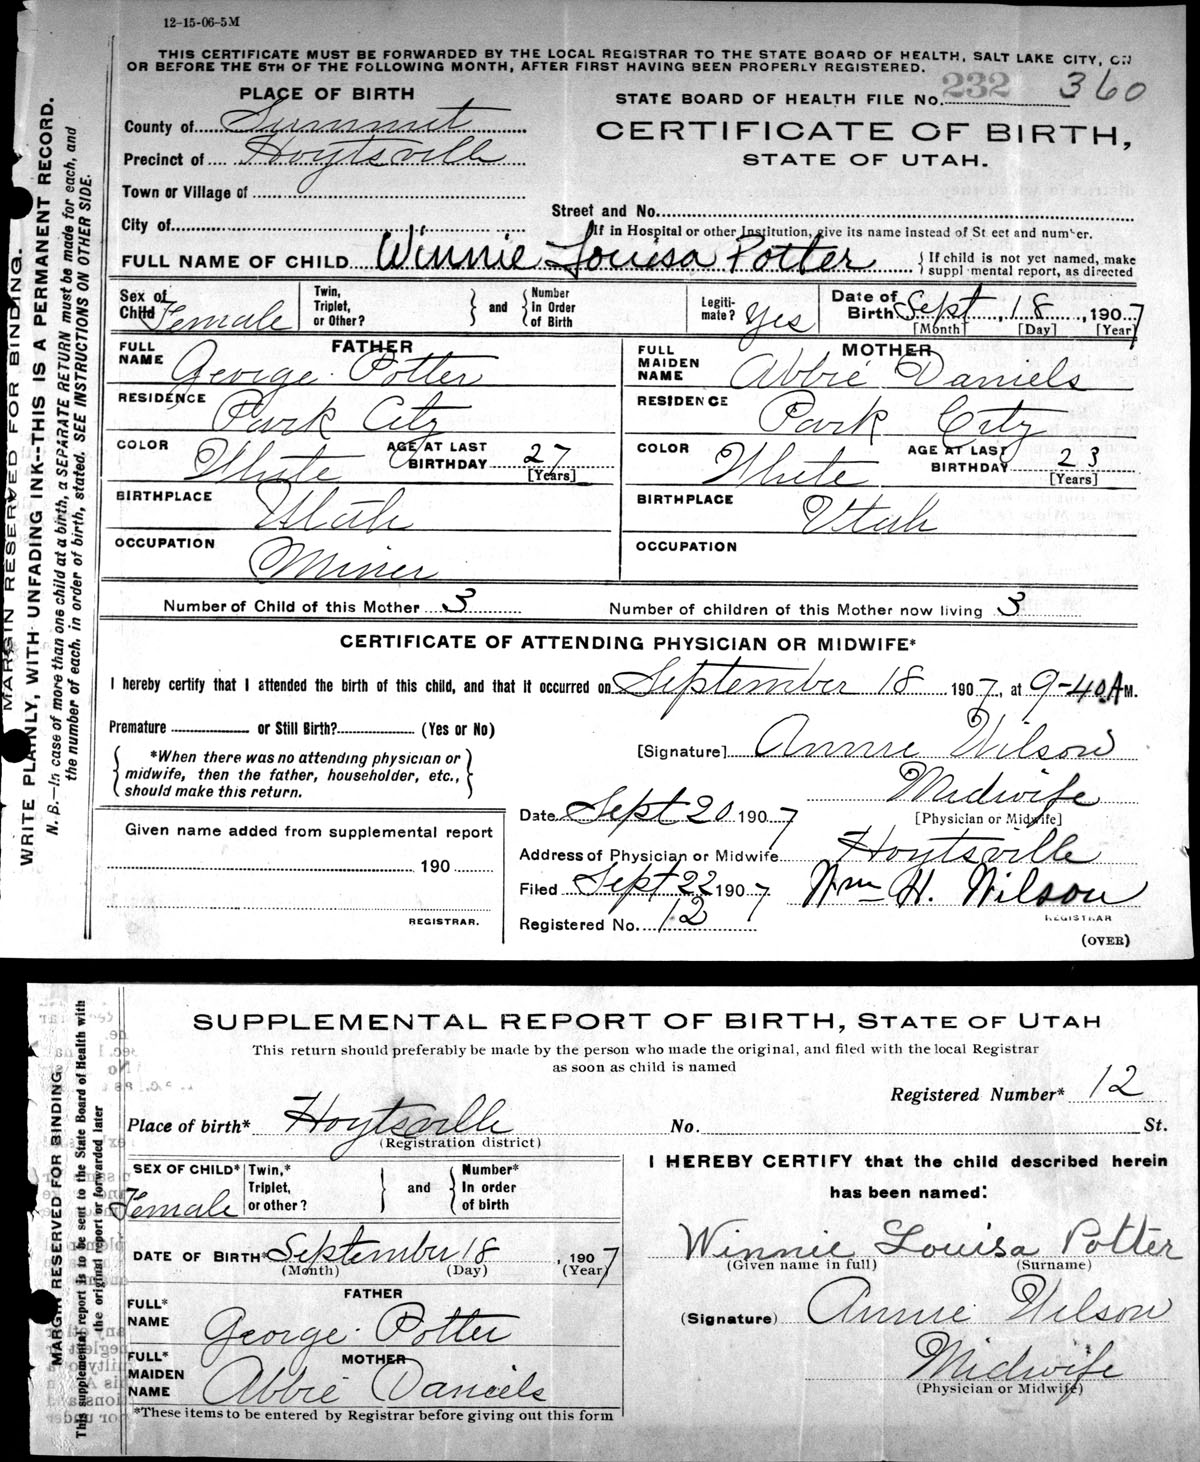 12-15-06-5M
THIS CERTIFICATE MUST BE FORWARDED BY THE LOCAL REGISTRAR TO THE STATE BOARD OF HEALTH, SALT LAKE CITY, ON
OR BEFORE THE 5TH OF THE FOLLOWING MONTH, AFTER FIRST HAVING BEEN PROPERLY REGISTERED.
232 360
PLACE OF BIRTH
STATE BOARD OF HEALTH FILE No.
County of Summit
CERTIFICATE OF BIRTH,
Precinct of Hoytsville
STATE OF UTAH.
Town or Village of
Street and No.
City of
If in Hospital or other Institution, give its name instead of Street and number.
FULL NAME OF CHILD Winnie Louisa Potter
If child is not yet named, make
supplemental report, as directed
Sex of Child Female
Twin, Triplet, or Other?
and
Number In Order of Birth
Legiti-mate? Yes
Date of Birth Sept, 18, 1907
[Month] [Day] [Year]
FATHER
FULL NAME George Potter
MOTHER
FULL MAIDEN NAME Abbie Daniels
RESIDENCE Park City
RESIDENCE Park City
COLOR White AGE AT LAST BIRTHDAY 27 [Years]
COLOR White AGE AT LAST BIRTHDAY 23 [Years]
BIRTHPLACE Utah
BIRTHPLACE Utah
OCCUPATION Miner
OCCUPATION
Number of Child of this Mother 3
Number of children of this Mother now living 3
CERTIFICATE OF ATTENDING PHYSICIAN OR MIDWIFE*
I hereby certify that I attended the birth of this child, and that it occurred on September 18 1907, at 9-40 A M.
Premature or Still Birth? (Yes or No)
*When there was no attending physician or
midwife, then the father, householder, etc.,
should make this return.
[Signature] Annie Wilson
Midwife
[Physician or Midwife]
Given name added from supplemental report
190
REGISTRAR.
Date Sept 20 1907
Address of Physician or Midwife Hoytsville
Filed Sept 22 1907 Wm H. Wilson
REGISTRAR
Registered No. 12
(OVER)
MARGIN RESERVED FOR BINDING.
WRITE PLAINLY, WITH UNFADING INK--THIS IS A PERMANENT RECORD.
N. B.—In case of more than one child at a birth, a SEPARATE RETURN must be made for each, and
the number of each, in order of birth, stated. SEE INSTRUCTIONS ON OTHER SIDE.
SUPPLEMENTAL REPORT OF BIRTH, STATE OF UTAH
This return should preferably be made by the person who made the original, and filed with the local Registrar
as soon as child is named
Registered Number* 12
Place of birth* Hoytsville No. St.
(Registration district)
SEX OF CHILD* Female
Twin,* Triplet, or other?
and
Number* In order of birth
DATE OF BIRTH* September 18, 1907
(Month) (Day) (Year)
FATHER
FULL* NAME George Potter
MOTHER
FULL* MAIDEN NAME Abbie Daniels
*These items to be entered by Registrar before giving out this form
I HEREBY CERTIFY that the child described herein
has been named:
Winnie Louisa Potter
(Given name in full) (Surname)
(Signature) Annie Wilson
Midwife
(Physician or Midwife)
MARGIN RESERVED FOR BINDING.
This supplemental report is to be sent to the State Board of Health with
the original report or forwarded later